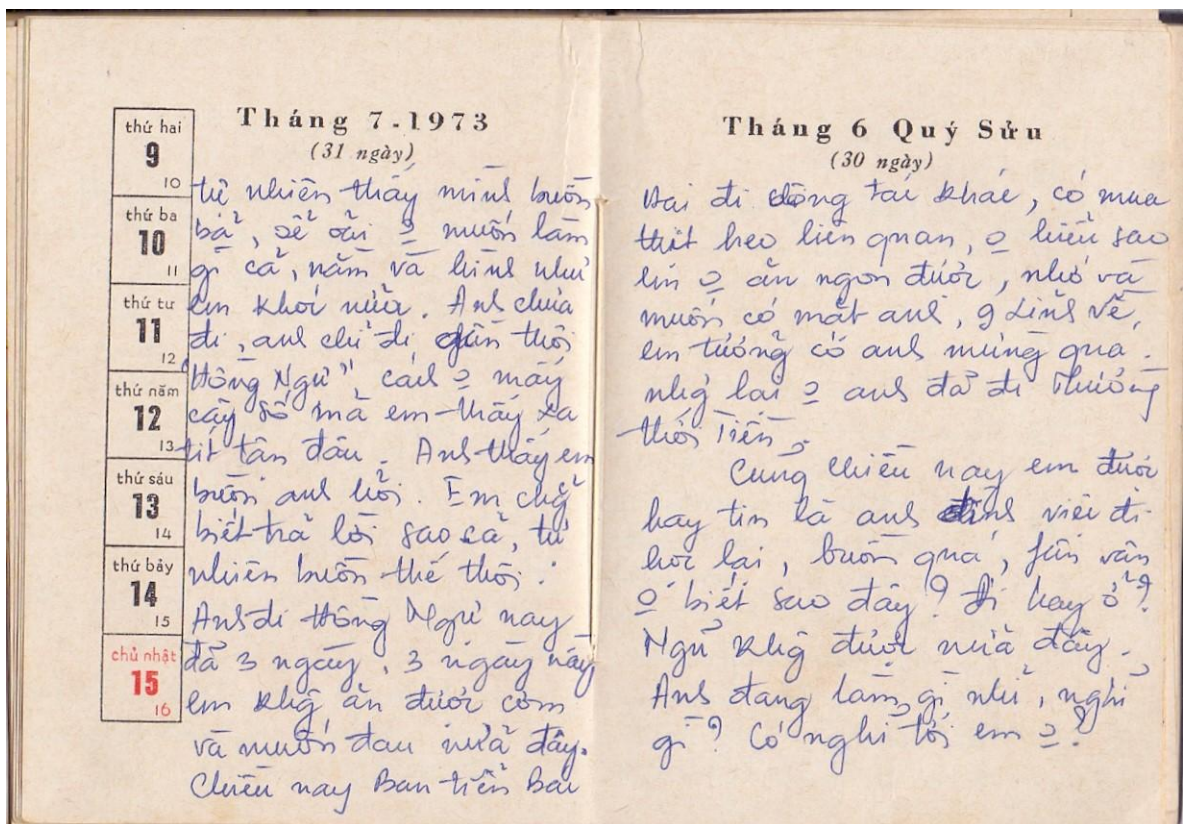 Tháng 7-1973
(31 ngày)
thứ hai
9
10
thứ ba
10
11
thứ tư
11
12
thứ năm
12
13
thứ sáu
13
14
thứ bảy
14
15
chủ nhật
15
16
tự nhiên thấy mình buồn
bã, uể oải o muốn làm
gì cả, nằm và hình như
em khóc nữa. Anh chưa
đi, anh chỉ đi gần thôi
"Hồng Ngự", cách o mấy
cây số mà em thấy xa
tít tận đâu. Anh thấy em
buồn anh hỏi. Em chẳ
biết trả lời sao cả, tự
nhiên buồn thế thôi.
Anh đi Hồng Ngự nay
đã 3 ngày, 3 ngày này
em khg ăn được cơm
và muốn đau nữa đây.
Chiều nay Ban tiễn Bai
Tháng 6 Quý Sửu
(30 ngày)
Hai đi công tác khác, có mua
thịt heo liên quan, o hiểu sao
em o ăn ngon được, nhớ và
muốn có mặt anh, 9 Linh về,
em tưởng có anh mừng quá.
nhg lại o anh đã đi Thường
Thới Tiền.
Cũng chiều nay em được
hay tin là anh định việc đi
học lại, buồn quá, phân vân
o biết sao đây? Đi hay ở?
Ngủ khg được nữa đây.
Anh đang làm gì nhỉ, nghĩ
gì? Có nghĩ tới em o?